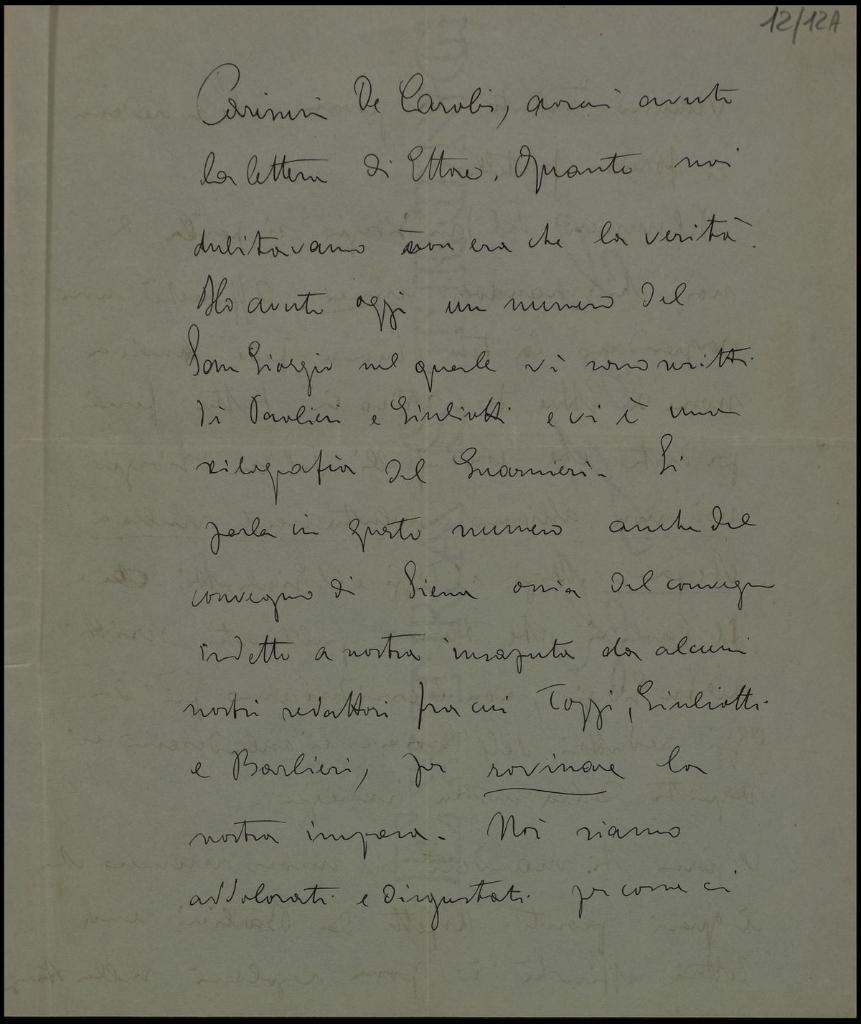 12/12A
Carissimi De Carolis, avrai avuto
la lettera di Ettore. Quanto noi
dubitavamo non era che la verità.
Ho avuto oggi un numero del
San Giorgio nel quale vi sono scritti
di Paolieri e Giuliotti e vi è una
xilografia del Guarnieri. Si
parla in questo numero anche del
convegno di Siena ossia del convegno
indetto a nostra insaputa da alcuni
nostri redattori fra cui Tozzi, Giuliotti
e Barlieri, per rovinare la
nostra impresa. Noi siamo
addolorati e disgustati per come ci